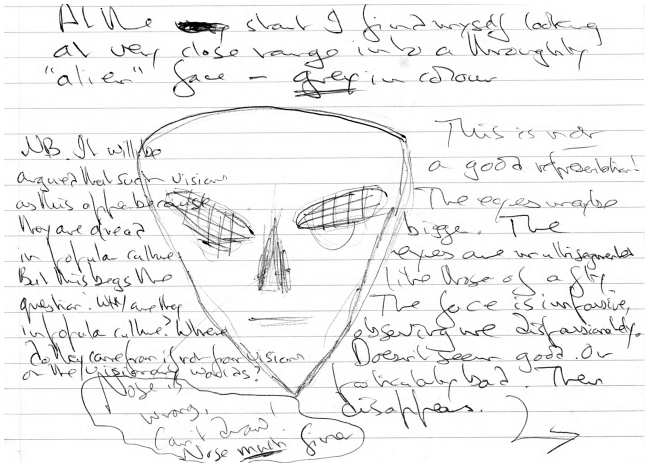 At the start I find myself looking
at very close range into a throughly
"alien" face – grey in colour
NB. It will be
argued that such visions
as this appear because
they are already
in popular culture.
But this begs the
question: Why are they
in popular culture? Where
do they come from if not from visions
or the visionary worlds?
Nose is
wrong,
Can't draw!
Nose much finer
This is not
a good representation!
The eyes maybe
bigger. The
eyes are multisegmented
like those of a fly
The face is impassive,
observing me dispassionately.
Doesn't seem good. Or
particularly bad. Then
disappears.